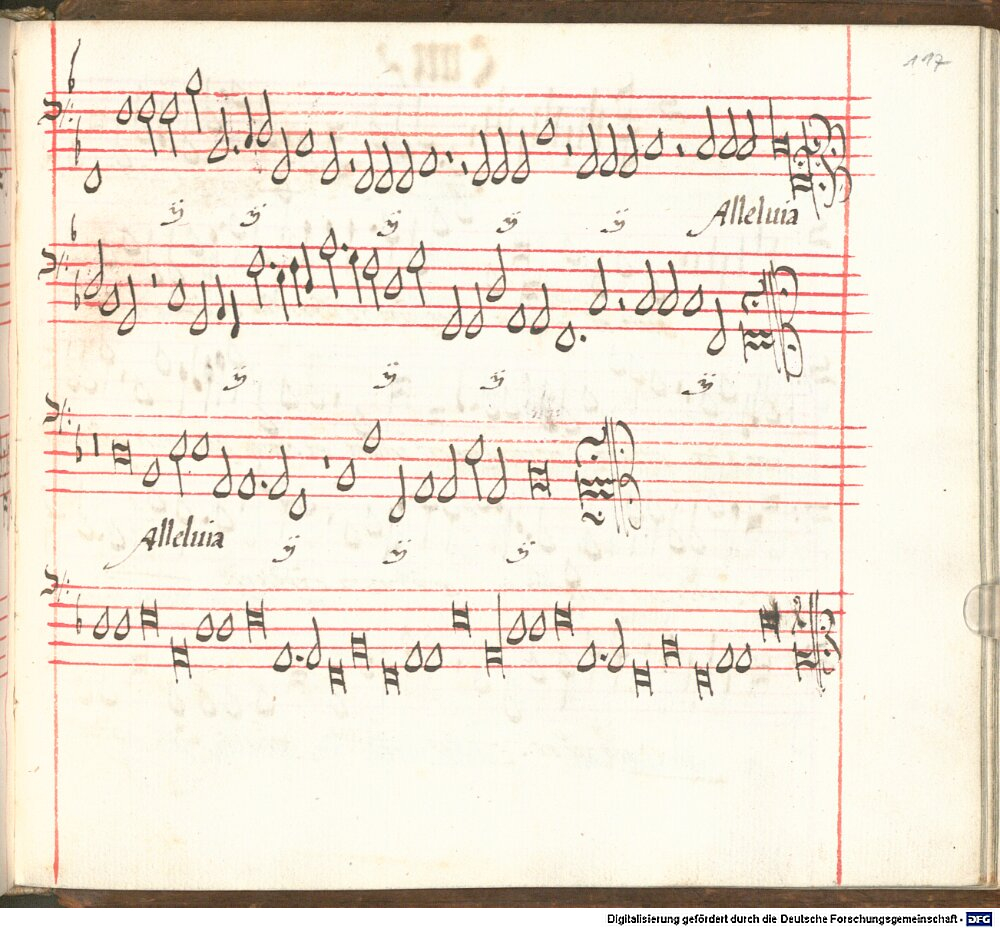 117
ÿ ÿ ÿ ÿ ÿ Alleluia
ÿ ÿ ÿ ÿ
Alleluia ÿ ÿ ÿ
Digitalisierung gefördert durch die Deutsche Forschungsgemeinschaft - DFG